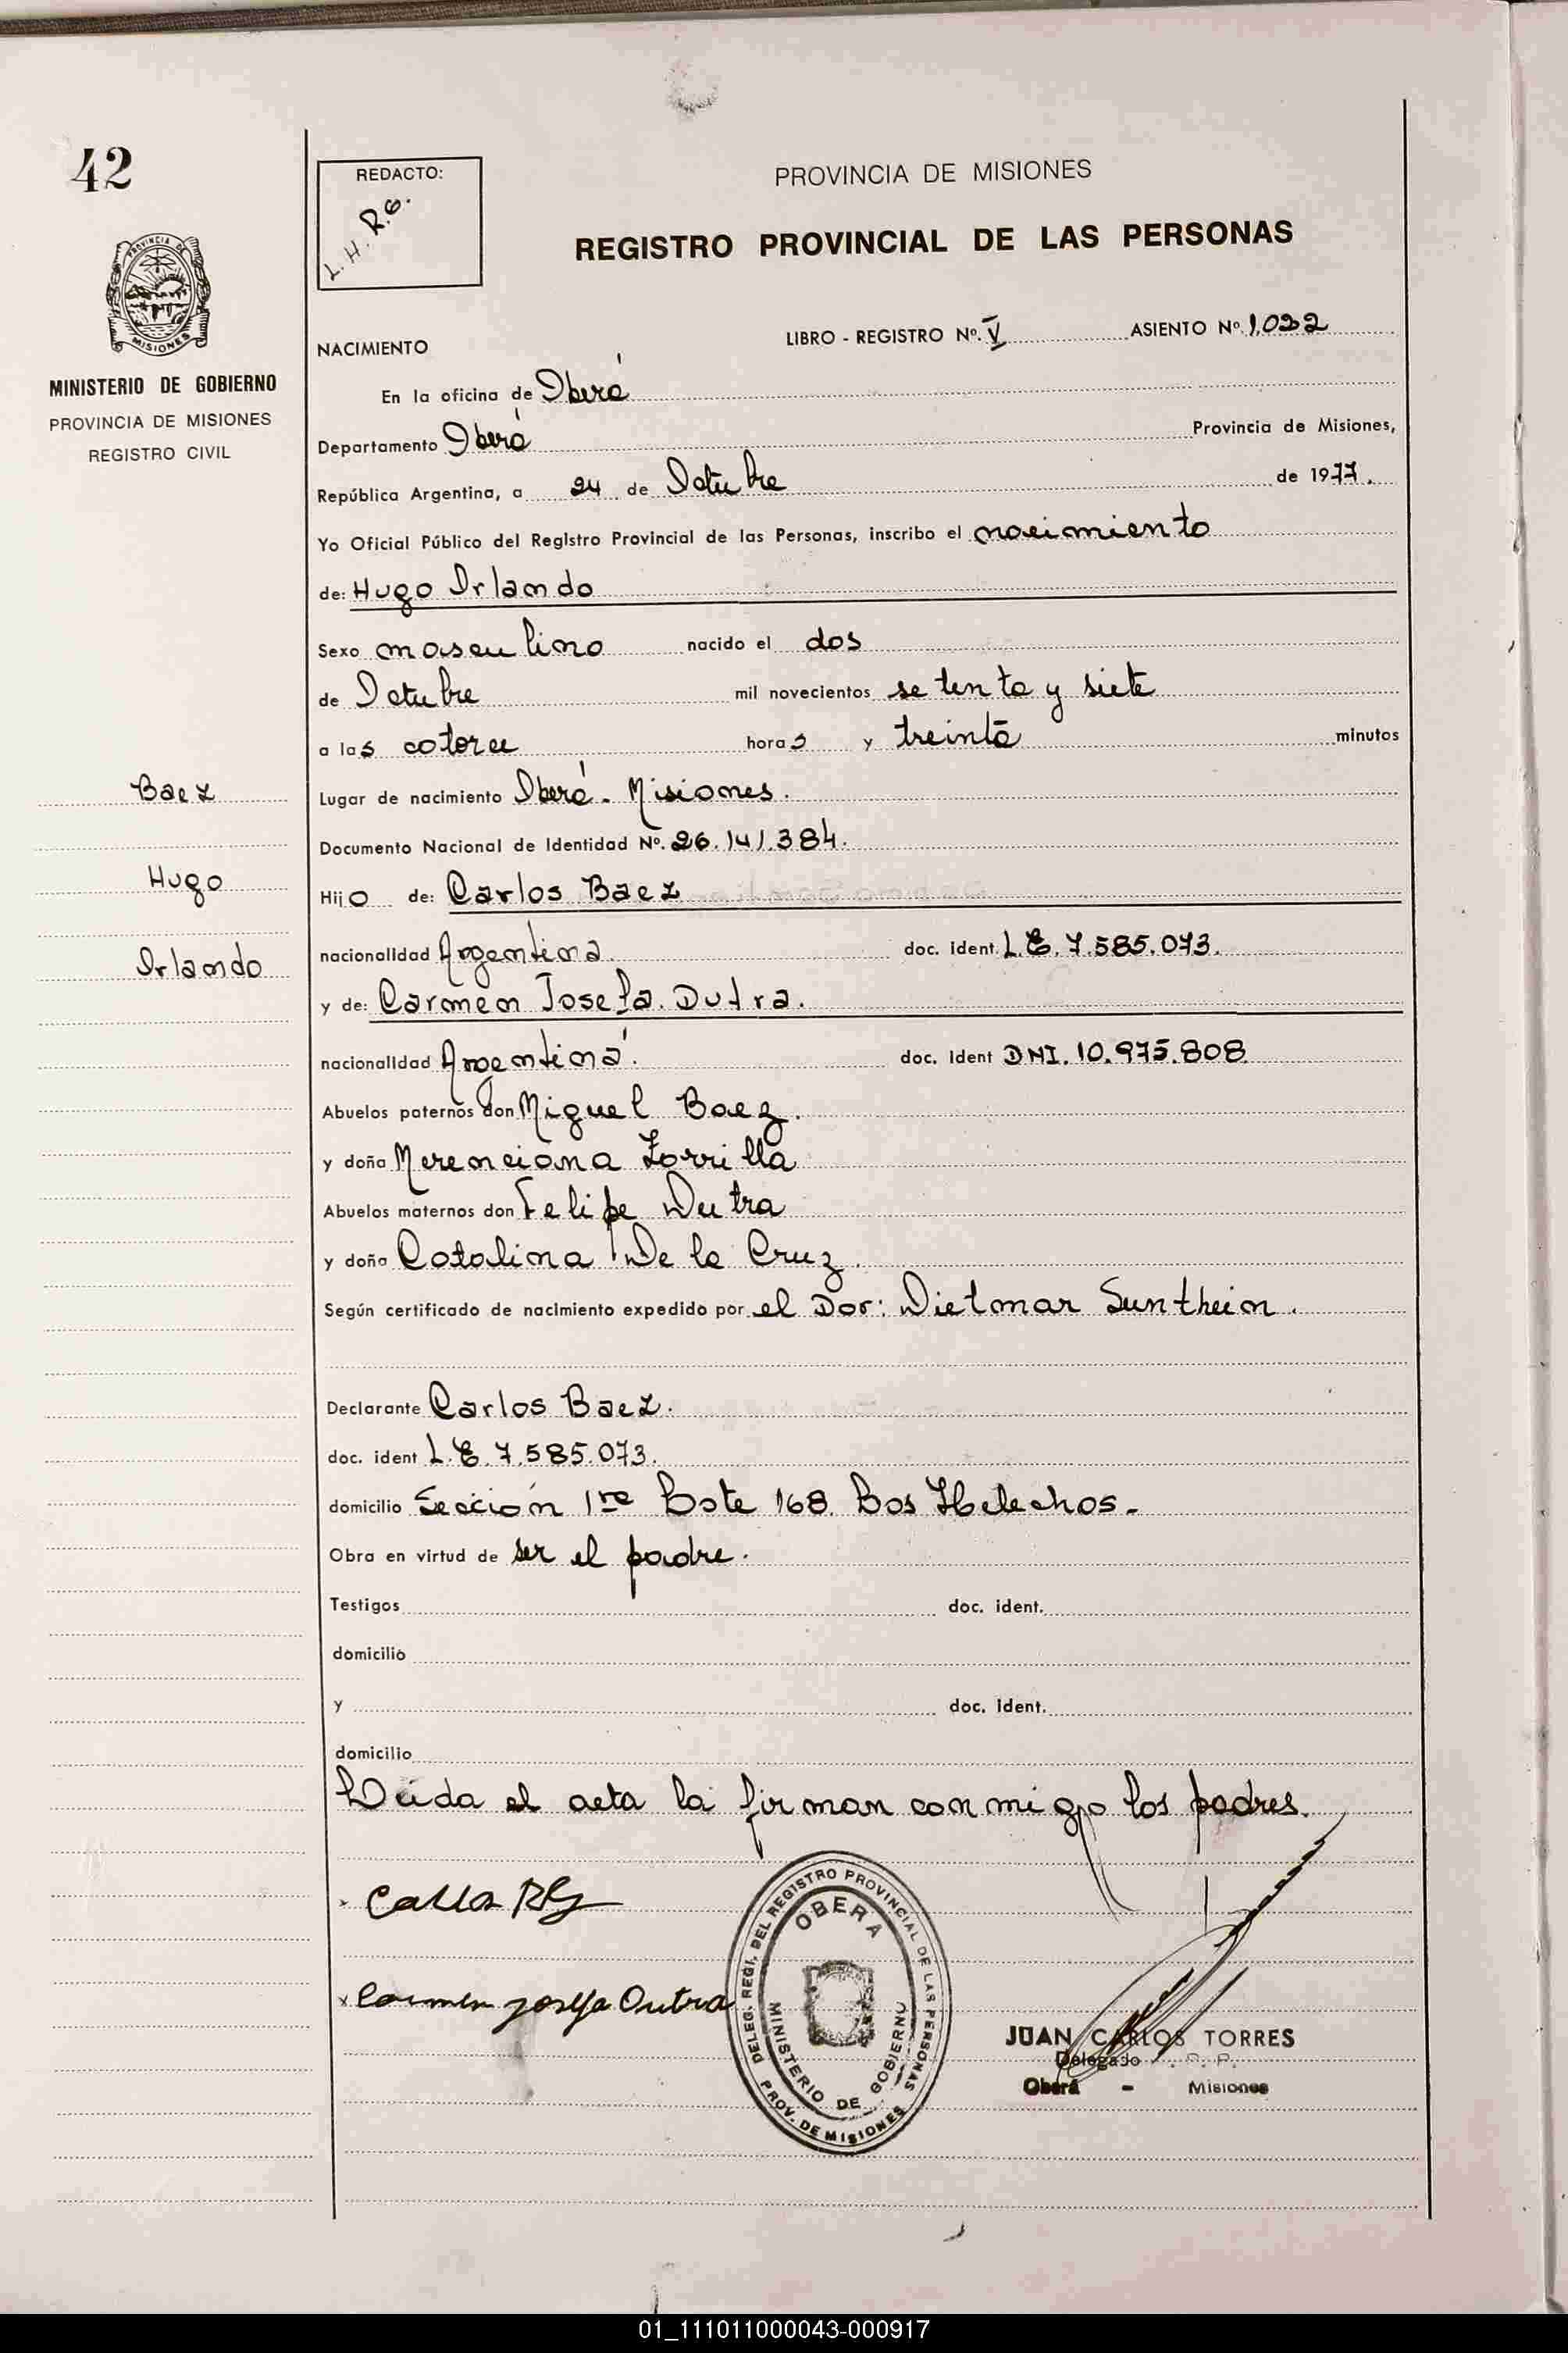 42
REDACTO:
L. H. R.G.
PROVINCIA DE MISIONES
REGISTRO PROVINCIAL DE LAS PERSONAS
PROVINCIA DE MISIONES
MINISTERIO DE GOBIERNO
PROVINCIA DE MISIONES
REGISTRO CIVIL
NACIMIENTO
LIBRO - REGISTRO Nº. V ASIENTO Nº 1.022
En la oficina de Oberá
Departamento Oberá Provincia de Misiones,
República Argentina, a 24 de Octubre de 1977.
Yo Oficial Público del Registro Provincial de las Personas, inscribo el nacimiento
de: Hugo Orlando
Sexo masculino nacido el dos
de Octubre mil novecientos setenta y siete
a las catorce horas y treinta minutos
Baez
Lugar de nacimiento Oberá - Misiones.
Documento Nacional de Identidad Nº. 26.141.384.
Hugo
Hijo de: Carlos Baez
Orlando
nacionalidad Argentina. doc. ident. L.E. 7.585.073.
y de: Carmen Josefa. Dutra.
nacionalidad Argentina. doc. ident DNI. 10.975.808
Abuelos paternos don Miguel Baez.
y doña Merenciana Zorrilla
Abuelos maternos don Felipe Dutra
y doña Catalina De la Cruz.
Según certificado de nacimiento expedido por el Dor: Dietmar Suntheim.
Declarante Carlos Baez.
doc. ident L.E. 7.585.073.
domicilio Sección 1ra Lote 168. Los Helechos.-
Obra en virtud de ser el padre.
Testigos doc. ident.
domicilio
y doc. ident.
domicilio
Leida el acta la firman conmigo los padres.
Carmen Josefa Dutra
DELEG. REGI. DEL REGISTRO PROVINCIAL DE LAS PERSONAS
OBERA
MINISTERIO DE GOBIERNO
PROV. DE MISIONES
JUAN CARLOS TORRES
Delegado R. P.
Oberá - Misiones
01_111011000043-000917